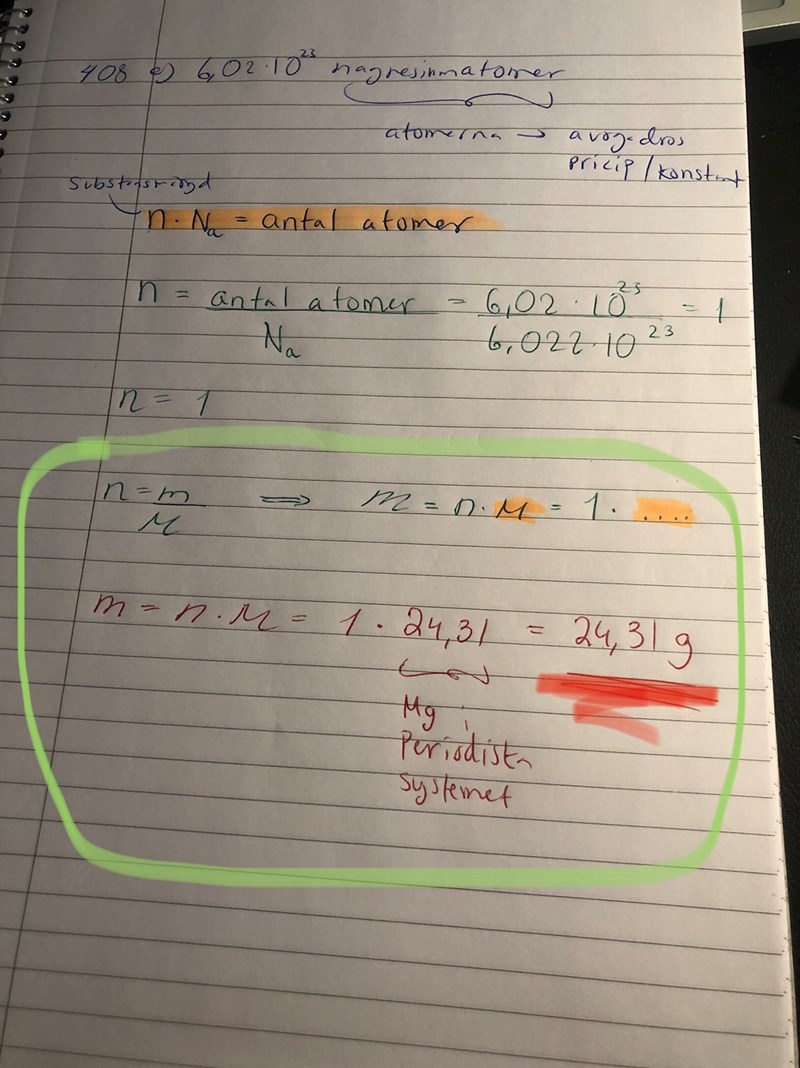 408 e) 6,02·10²³ magnesiumatomer
atomerna → avogadros
pricip/konstant
substansmängd
n·Na = antal atomer
n = antal atomer / Na = 6,02·10²³ / 6,022·10²³ = 1
n = 1
n = m / M ⟹ m = n·M = 1· ....
m = n·M = 1·24,31 = 24,31 g
Mg i
Periodiska
systemet